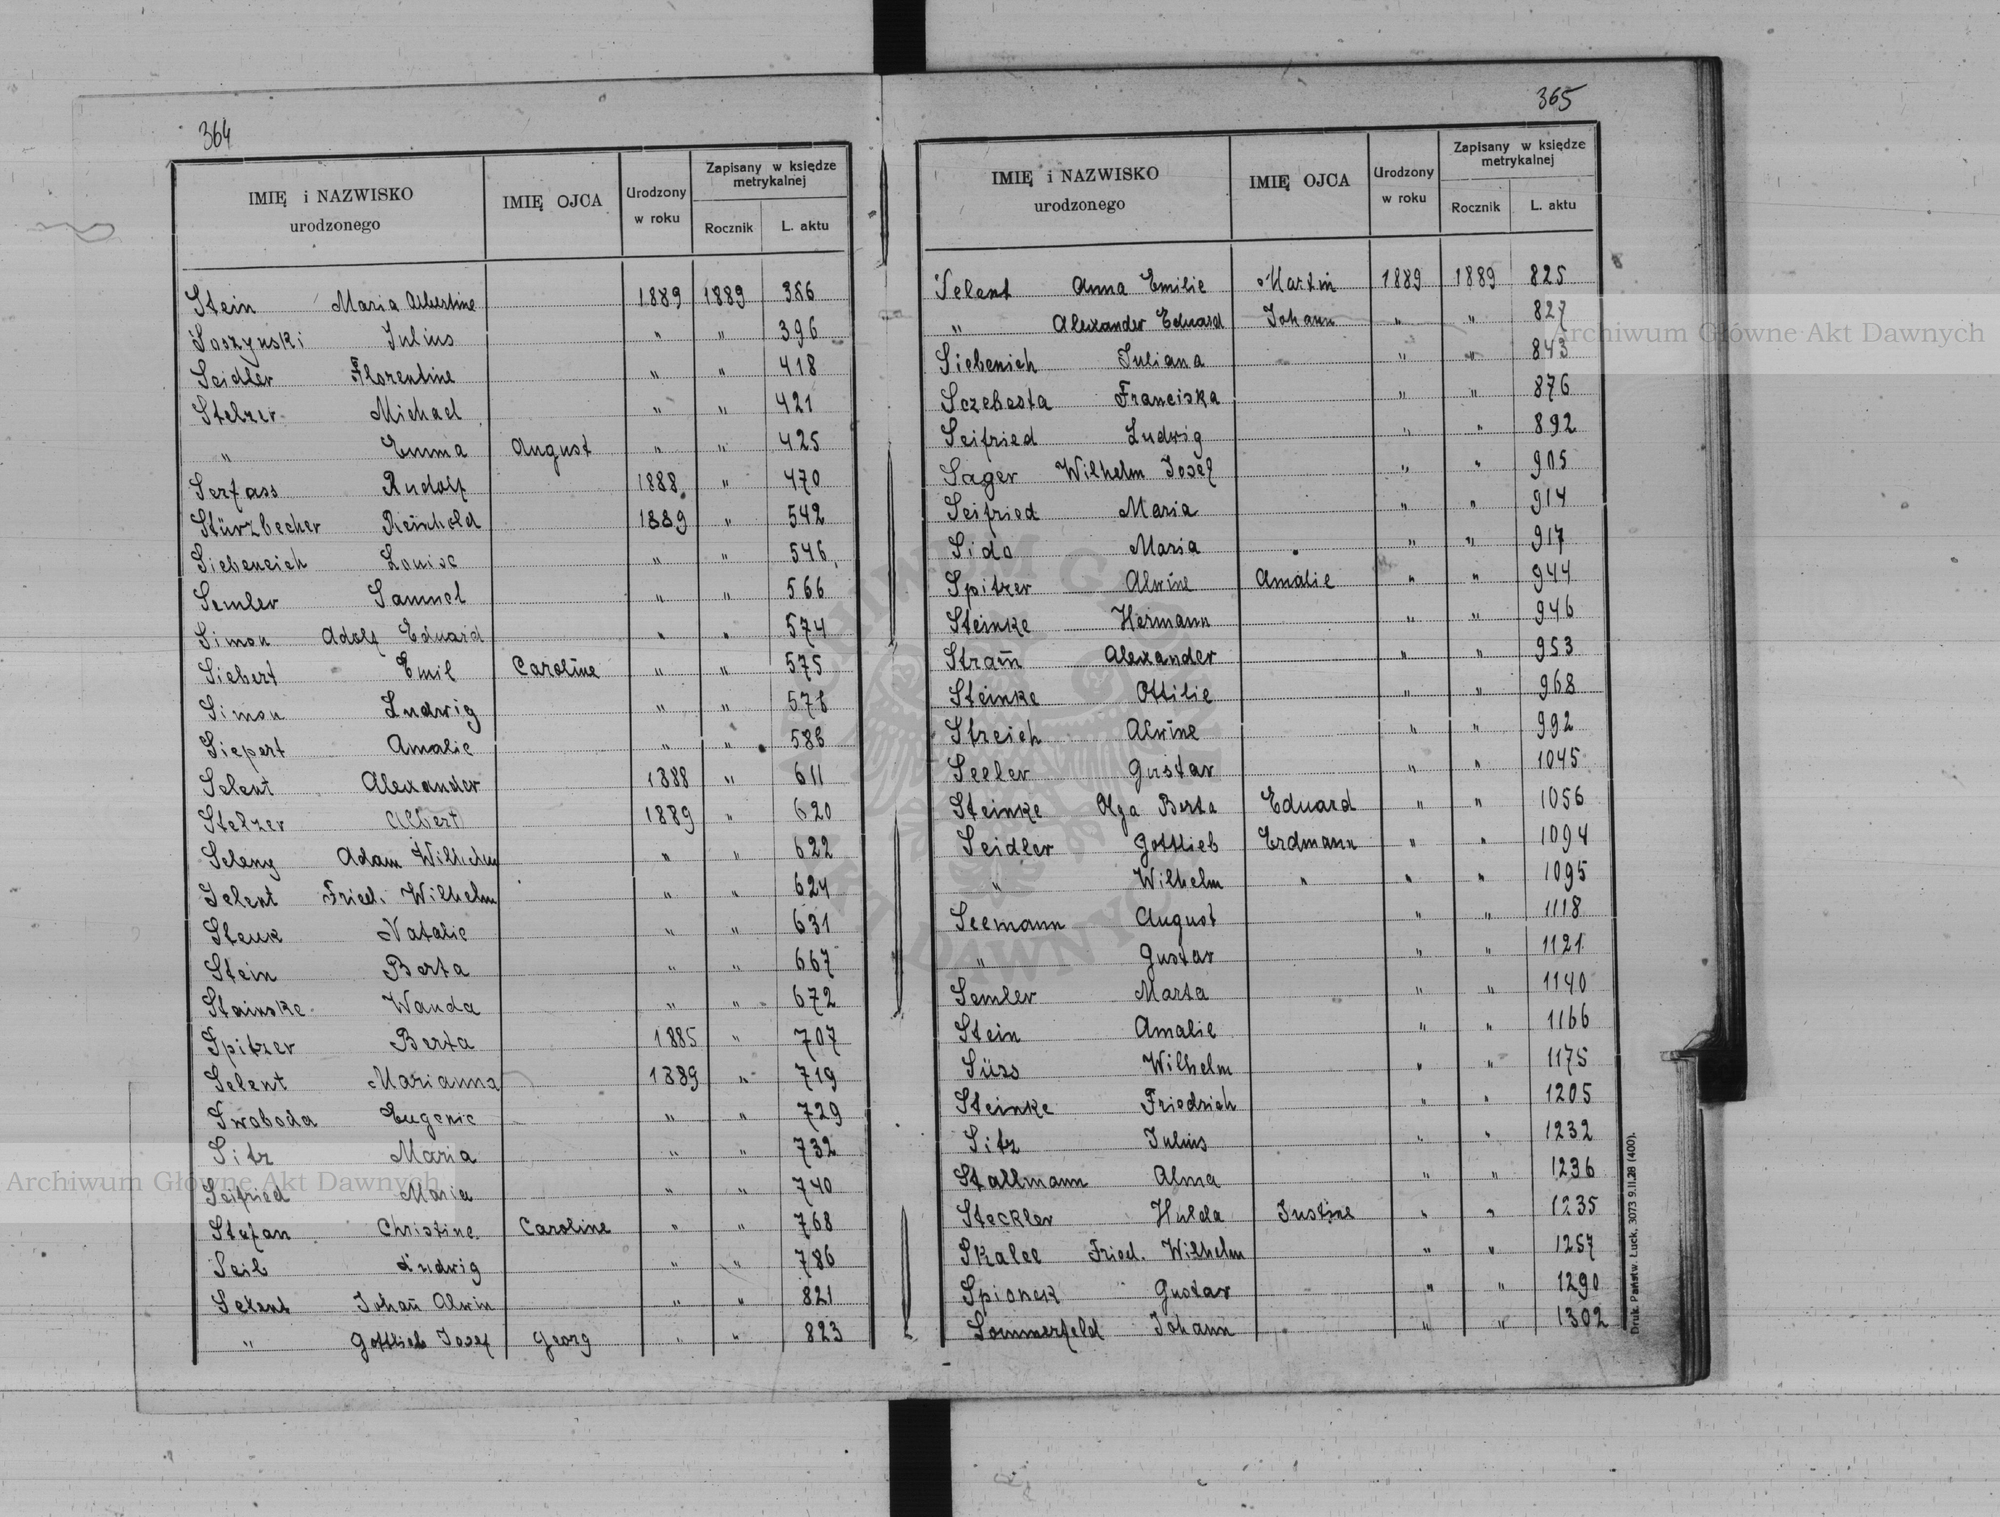 364
IMIĘ i NAZWISKO urodzonego IMIĘ OJCA Urodzony w roku Zapisany w księdze metrykalnej Rocznik L. aktu
Stein Maria Albertine 1889 1889 386
Soszynski Julius " " 396
Seidler Florentine " " 418
Stelzer Michael " " 421
" Emma August " " 425
Serfass Rudolf 1888 " 470
Stürzbecher Reinhold 1889 " 542
Siebeneich Louise " " 546
Semler Samuel " " 566
Simon Adolf Eduard " " 574
Siebert Emil Caroline " " 575
Simon Ludwig " " 578
Siepert Amalie " " 586
Selent Alexander 1888 " 611
Stelzer Albert 1889 " 620
Seleny Adam Wilhelm " " 622
Selent Fried. Wilhelm " " 624
Steuk Natalie " " 631
Stein Berta " " 667
Stainske Wanda " " 672
Spitzer Berta 1885 " 707
Selent Marianna 1889 " 719
Swoboda Eugenie " " 729
Sitz Maria " " 732
Seifried Maria " " 740
Stefan Christine Caroline " " 768
Seib Ludwig " " 786
Selent Johañ Alwin " " 821
" Gottlieb Josef Georg " " 823
365
IMIĘ i NAZWISKO urodzonego IMIĘ OJCA Urodzony w roku Zapisany w księdze metrykalnej Rocznik L. aktu
Selent Anna Emilie Martin 1889 1889 825
" Alexander Eduard Johann " " 827
Siebenich Juliana " " 843
Sczebesta Franciska " " 876
Seifried Ludwig " " 892
Sager Wilhelm Josef " " 905
Seifried Maria " " 914
Sido Maria " " 917
Spitzer Alwine Amalie " " 944
Steinke Hermann " " 946
Stram̄ Alexander " " 953
Steinke Ottilie " " 968
Streich Alwine " " 992
Seeler Gustav " " 1045
Steinke Olga Berta Eduard " " 1056
Seidler Gottlieb Erdmann " " 1094
" Wilhelm " " " 1095
Seemann August " " 1118
" Gustav " " 1121
Semler Marta " " 1140
Stein Amalie " " 1166
Süss Wilhelm " " 1175
Steinke Friedrich " " 1205
Sitz Julius " " 1232
Stallmann Alma " " 1236
Steckler Hulda Justine " " 1235
Skalee Fried. Wilhelm " " 1257
Spionek Gustav " " 1290
Sommerfeld Johann " " 1302
Druk. Państw. Łuck. 3073 9.II.28 (400).
Archiwum Główne Akt Dawnych
Archiwum Główne Akt Dawnych
ARCHIWUM GŁÓWNE AKT DAWNYCH